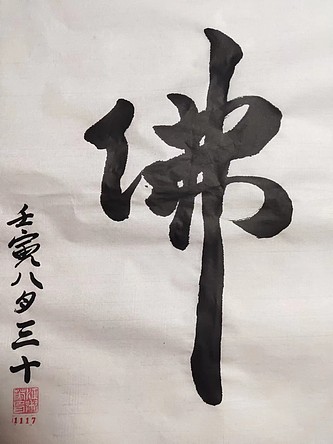 佛
壬寅八月三十
1117